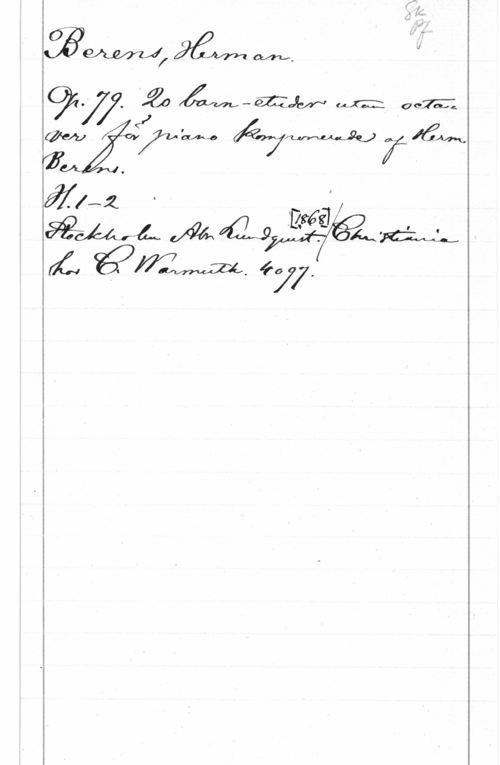 Sk
Pf
Berens, Herman.
Op. 79. 20 barn-etuder utan octa-
ver för piano komponerade af Herm.
Berens.
H. 1-2
Stockholm Abr. Lundquist. [1868] / Christiania
hos C. Warmuth. 4097.